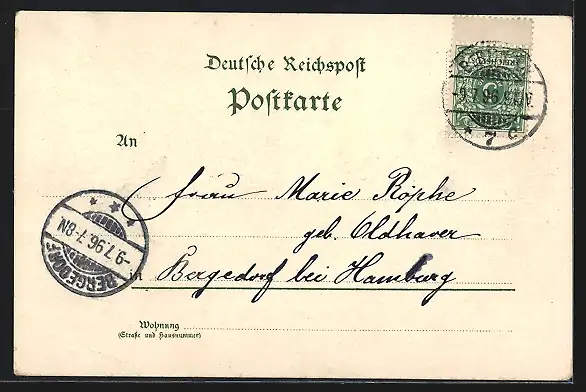 Deutsche Reichspost
Postkarte
An
Frau Marie Röphe
geb. Oldhaver
in Bergedorf bei Hamburg
Wohnung
(Straße und Hausnummer)
-9.7.96
7 c
BERGEDORF
-9.7.96.7-8N.